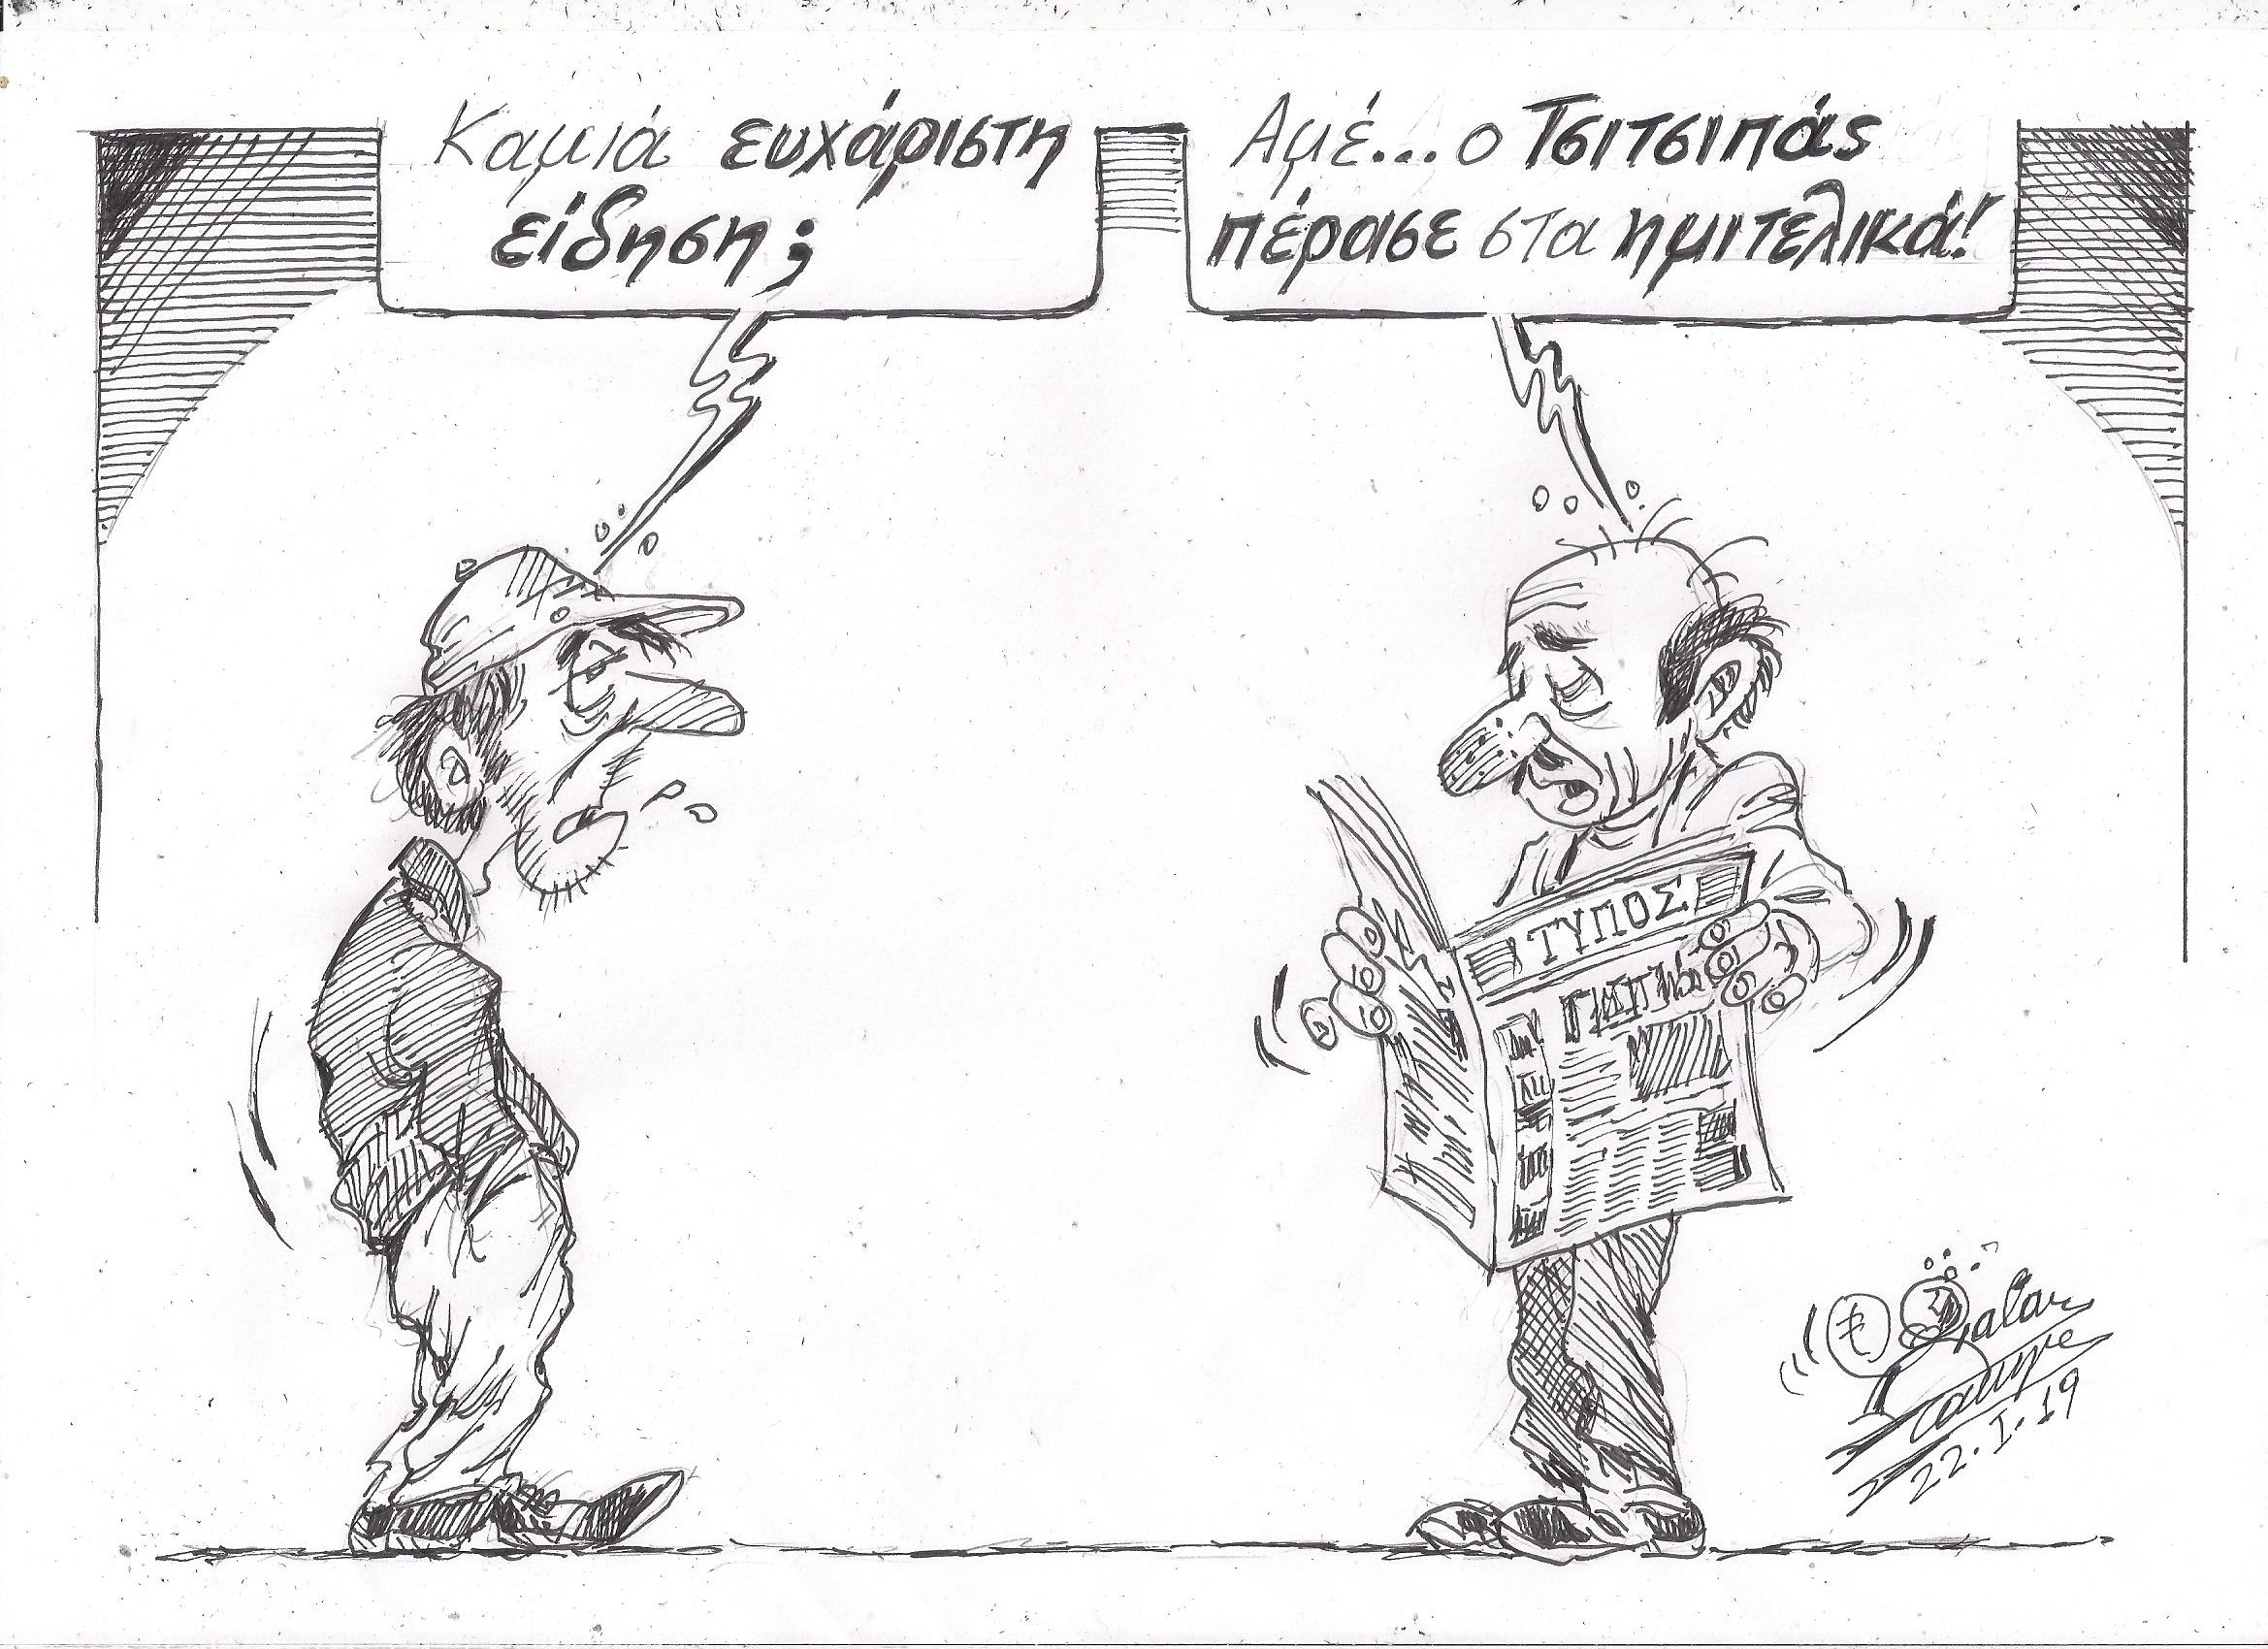 Καμιά ευχάριστη
είδηση;
Αμέ...ο Τσιτσιπάς
πέρασε στα ημιτελικά!
ΤΥΠΟΣ
22.I.19